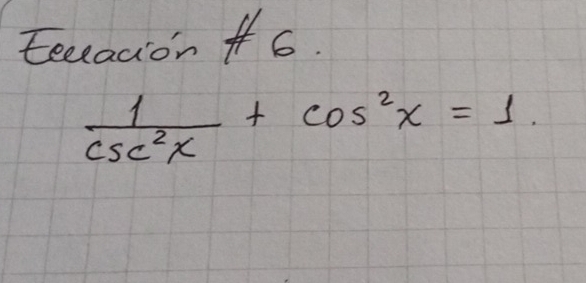 Ecuación # 6.
1/csc²x + cos²x = 1.